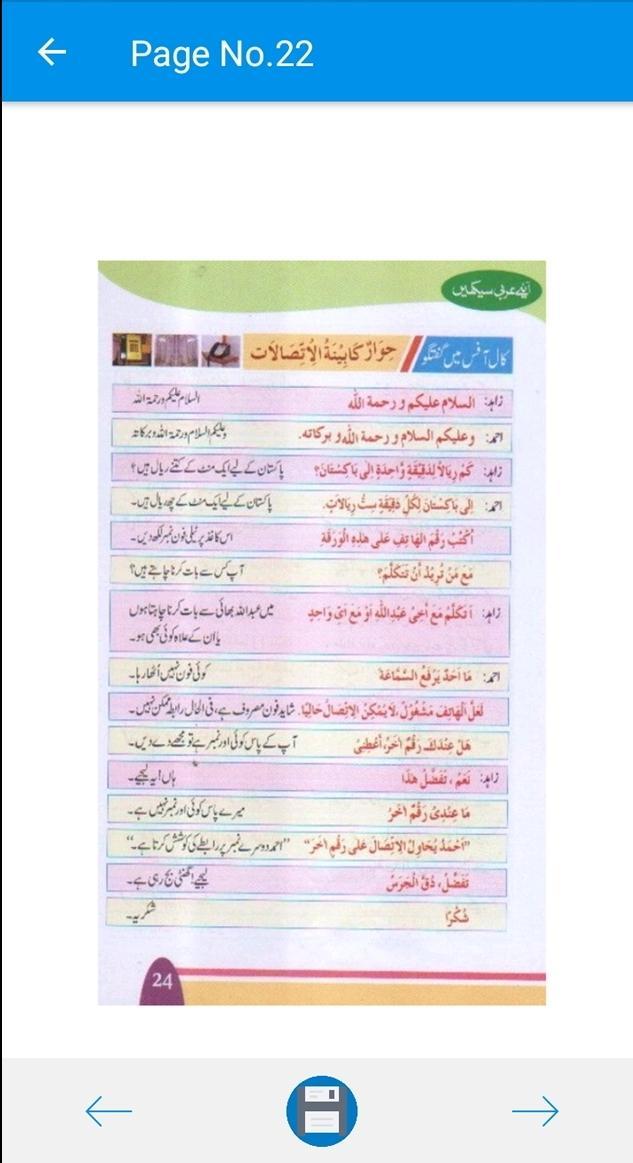 Page No.22
آیئے عربی سیکھیں
کال آفس میں گفتگو حِوَارُ كَابِيْنَةُ الْاِتِّصَالَات
زاہد: السلام عليكم و رحمة الله السلام علیکم ورحمۃ اللہ
احمد: وعليكم السلام و رحمة الله و بركاته. وعلیکم السلام ورحمۃ اللہ وبرکاتہ
زاہد: كَمْ رِيَالاً لِدَقِيْقَةٍ وَّاحِدَةٍ اِلٰى بَاكِسْتَانَ؟ پاکستان کے لیے ایک منٹ کے کتنے ریال ہیں؟
احمد: اِلٰى بَاكِسْتَانَ لِكُلِّ دَقِيْقَةٍ سِتُّ رِيَالَاتٍ. پاکستان کے لیے ایک منٹ کے چھ ریال ہیں۔
اُكْتُبْ رَقْمَ الْهَاتِفِ عَلٰى هٰذِهِ الْوَرَقَةِ اس کاغذ پر ٹیلی فون نمبر لکھ دیں۔
مَعَ مَنْ تُرِيْدُ اَنْ تَتَكَلَّمَ؟ آپ کس سے بات کرنا چاہتے ہیں؟
زاہد: اَتَكَلَّمُ مَعَ اَخِىْ عَبْدِاللّٰهِ اَوْ مَعَ اَىِّ وَاحِدٍ میں عبداللہ بھائی سے بات کرنا چاہتا ہوں
یا ان کے علاوہ کوئی بھی ہو۔
احمد: مَا اَحَدٌ يَرْفَعُ السَّمَّاعَةَ کوئی فون نہیں اُٹھا رہا۔
لَعَلَّ الْهَاتِفَ مَشْغُوْلٌ لَا يُمْكِنُ الْاِتِّصَالُ حَالِيًا. شاید فون مصروف ہے، فی الحال رابطہ ممکن نہیں۔
هَلْ عِنْدَكَ رَقْمٌ اٰخَرُ، اَعْطِنِىْ آپ کے پاس کوئی اور نمبر ہے تو مجھے دے دیں۔
زاہد: نَعَمْ، تَفَضَّلْ هٰذَا ہاں! یہ لیجیے۔
مَا عِنْدِىْ رَقْمٌ اٰخَرُ میرے پاس کوئی اور نمبر نہیں ہے۔
"اَحْمَدُ يُحَاوِلُ الْاِتِّصَالَ عَلٰى رَقْمٍ اٰخَرَ" "احمد دوسرے نمبر پر رابطے کی کوشش کرتا ہے۔"
تَفَضَّلْ، دُقَّ الْجَرَسُ لیجیے! گھنٹی بج رہی ہے۔
شُكْرًا شکریہ۔
24